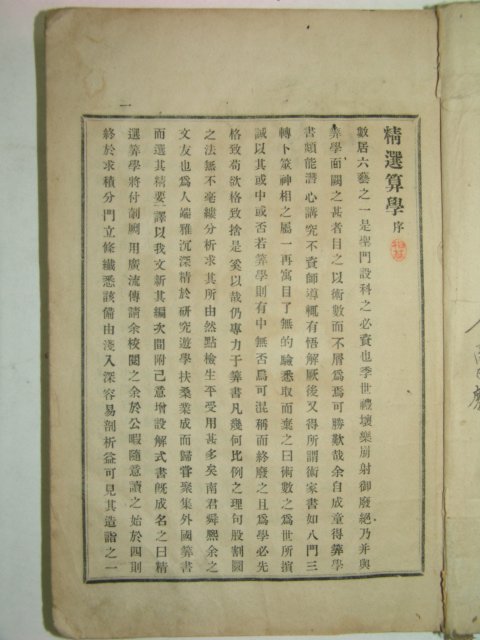 精選算學序
數居六藝之一是聖門設科之必資也季世禮壞樂崩射御廢絕乃幷與
筭學而闕之甚者目之以術數而不屑爲焉可勝歎哉余自成童得筭學
書頗能潛心講究不資師導輒有悟解厥後又得所謂術家書如八門三
轉卜筮神相之屬一再寓目了無的驗悉取而棄之曰術數之爲世所擯
誠以其或中或否若筭學則有中無否焉可混稱而終廢之且爲學必先
格致苟欲格致捨是奚以哉仍專力于筭書凡幾何比例之理句股割圓
之法無不毫縷分析求其所由然點檢生平受用甚多矣南君舜熙余之
文友也爲人端雅沉深精於硏究遊學扶桑業成而歸嘗聚集外國筭書
而選其精要譯以我文新其編次間附己意增設解式書旣成名之曰精
選筭學將付剞劂用廣流傳請余校閱之余於公暇隨意讀之始於四則
終於求積分門立條纖悉該備由淺入深容易剖析益可見其造詣之一
一